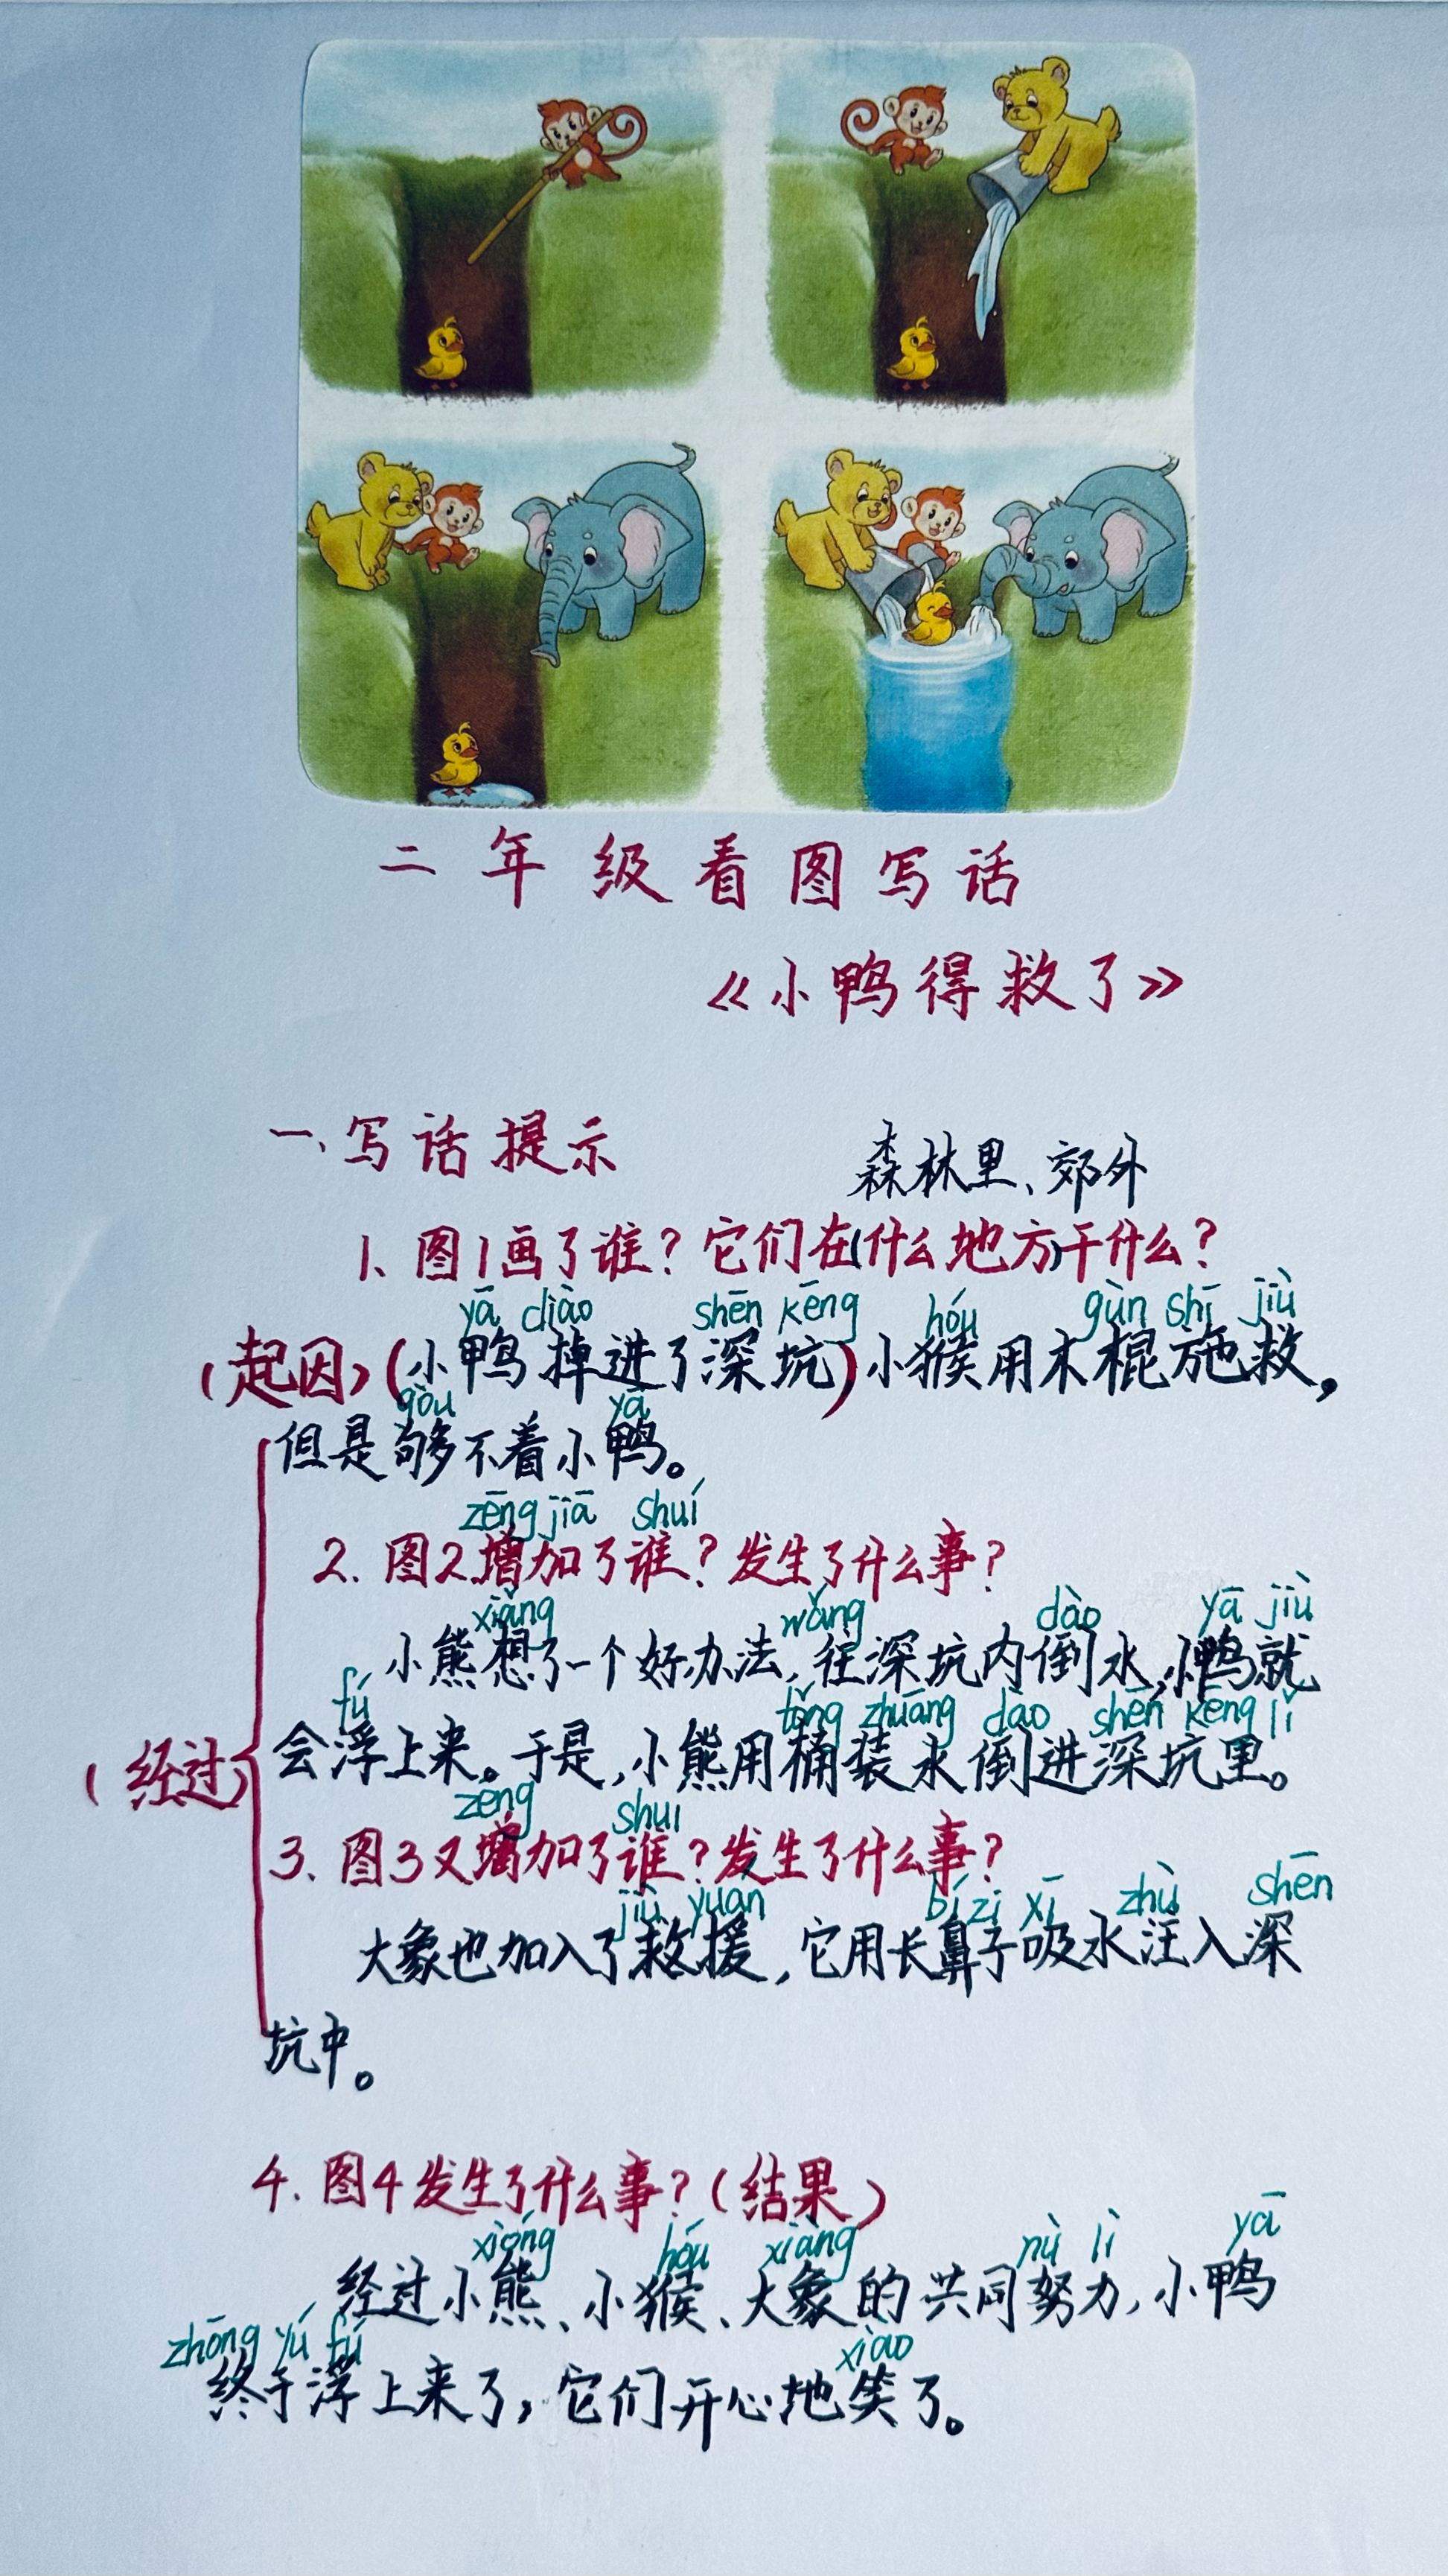 二年级看图写话
《小鸭得救了》
一、写话提示
森林里、郊外
1、图1画了谁？它们在(什么地方)干什么？
yā diào shēn kēng hóu gùn shī jiù
(起因)(小鸭掉进了深坑)小猴用木棍施救，
gòu yā
但是够不着小鸭。
zēng jiā shuí
2. 图2增加了谁？发生了什么事？
xiǎng wǎng dào yā jiù
小熊想了一个好办法，往深坑内倒水，小鸭就
fú tǒng zhuāng dào shēn kēng lǐ
会浮上来。于是，小熊用桶装水倒进深坑里。
(经过)
zēng shuí
3、图3又增加了谁？发生了什么事？
jiù yuán bí zi xī zhù shēn
大象也加入了救援，它用长鼻子吸水注入深
坑中。
4. 图4发生了什么事？(结果)
xióng hóu xiàng nǔ lì yā
经过小熊、小猴、大象的共同努力，小鸭
zhōng yú fú xiào
终于浮上来了，它们开心地笑了。